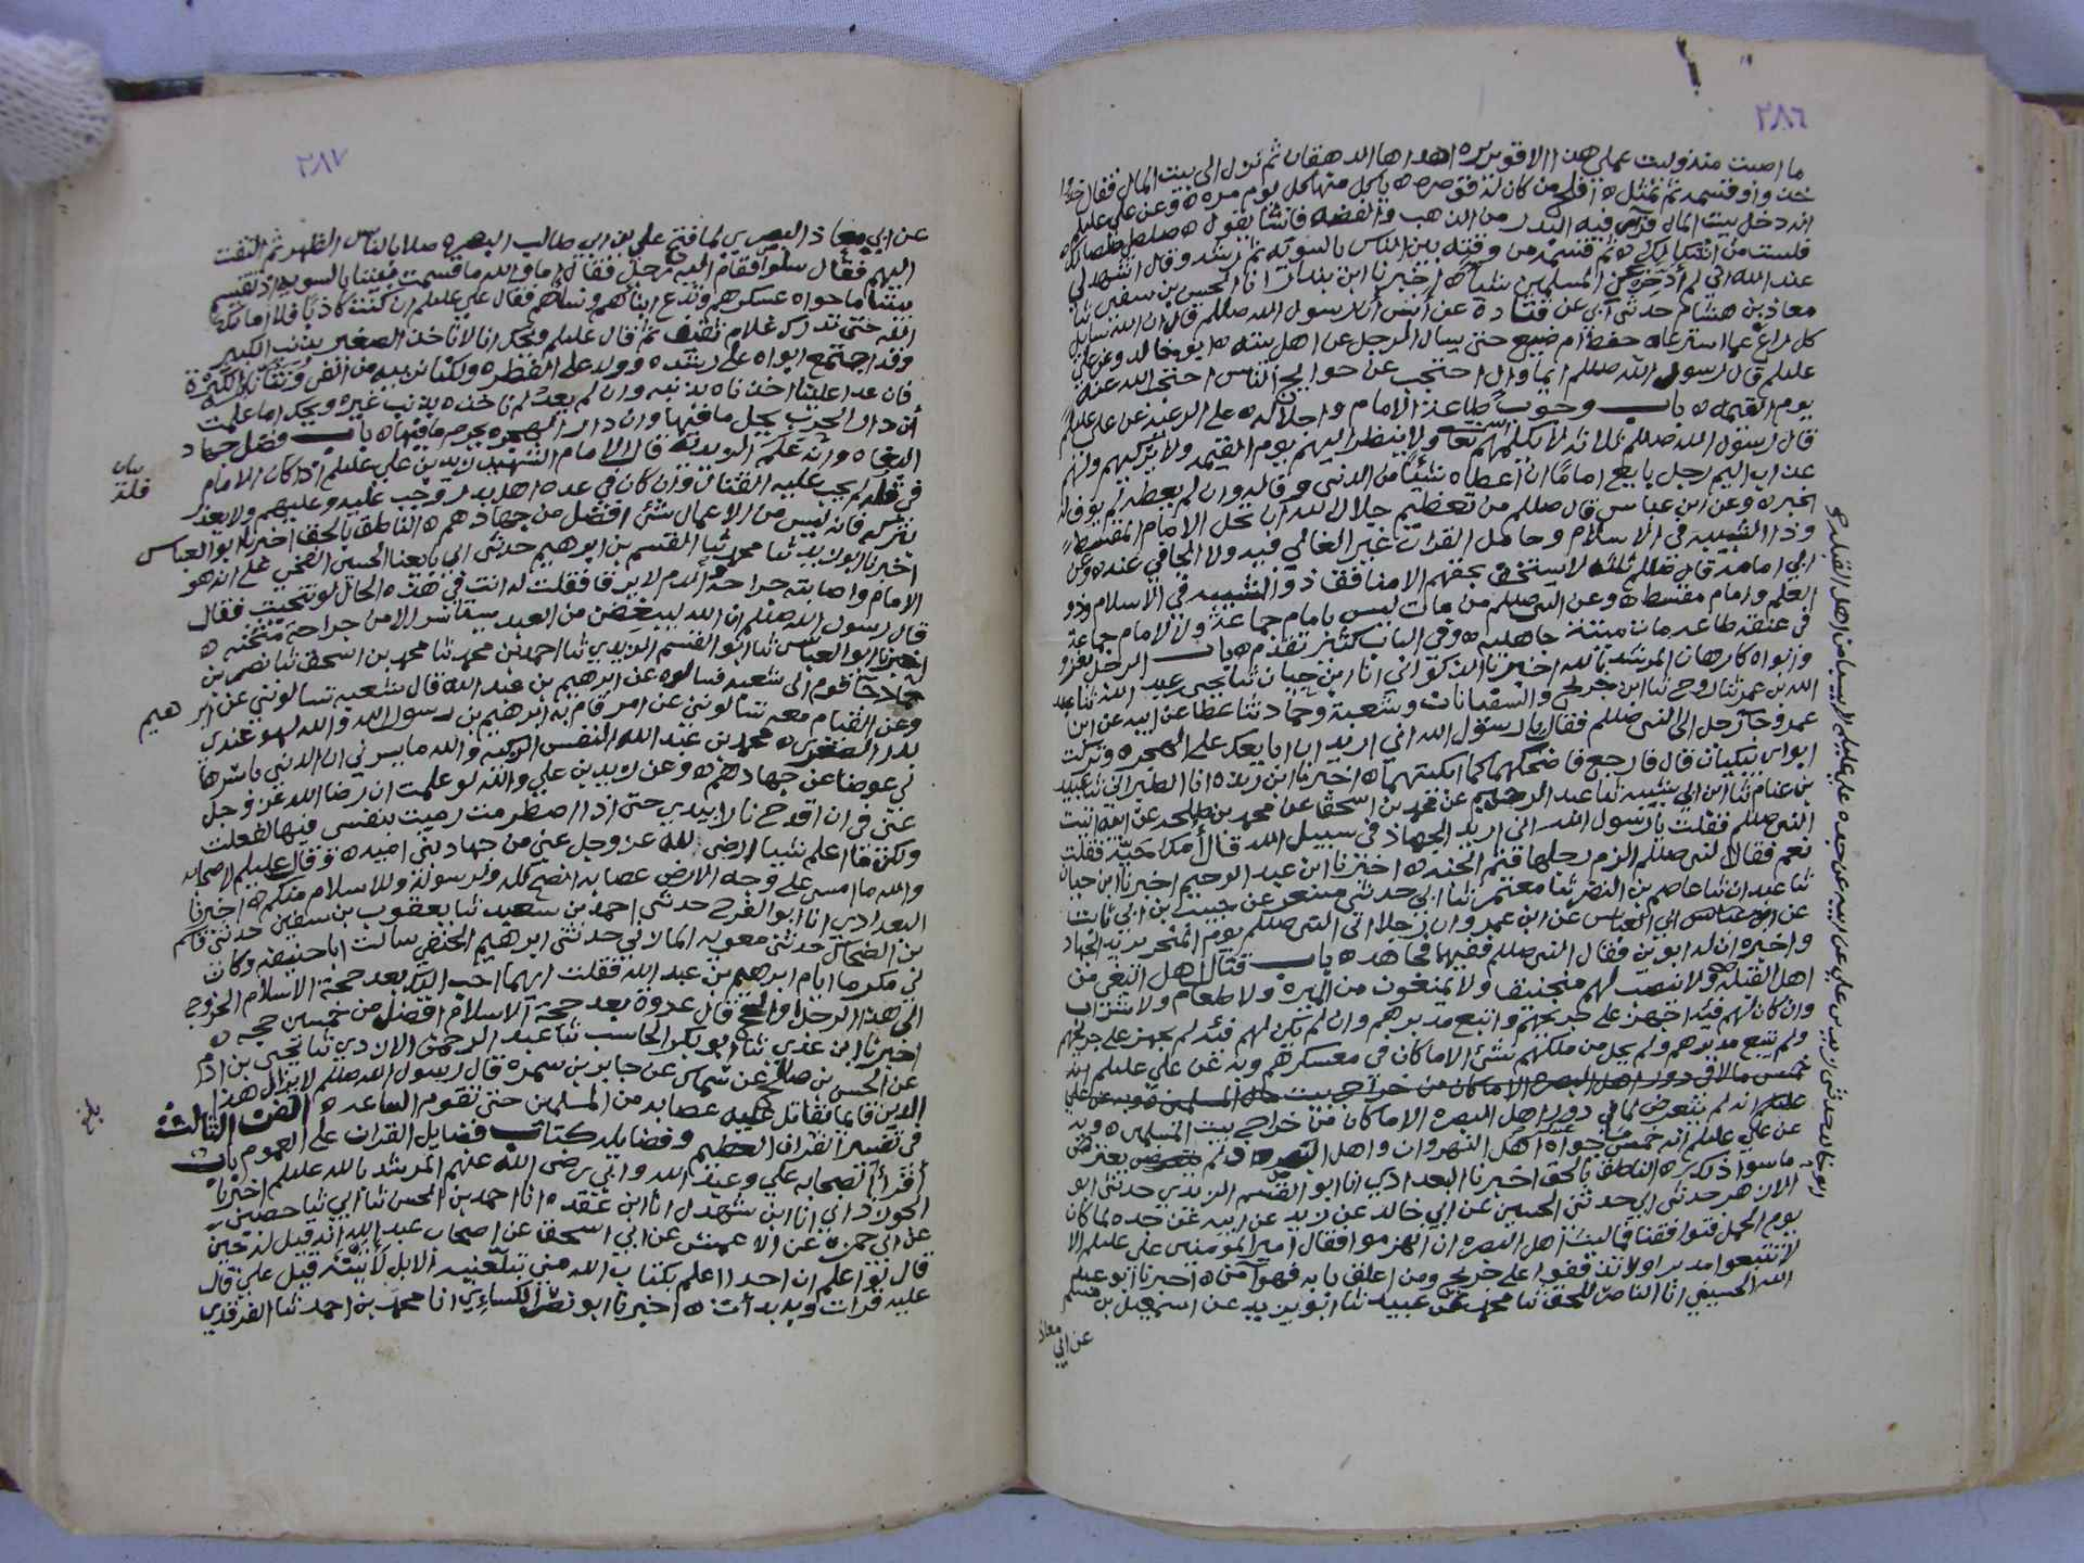 ٢٨٦
ما اصبت منذ وليت عملي هذا الا قويريره اهداها الدهقان ثم نزل الى بيت المال فقال خذوا
خذ واوقسمه ثم تمثل افلح من كان له قوصره ياكل منها كل يوم مره وعن علي عليلم
انه دخل بيت المال فراى فيه البدر من الذهب والفضه فانشا يقول صلصلي صلصالك
فلست من اشكالك ثم قسمه من وقته بين الناس بالسويه ثم رشه وقال اشهد لي
عند الله اني لم أدخره عن المسلمين شيا اخبرنا ابن بندار انا الحسن بن سفين ثنا
معاذ بن هشام حدثني ابي عن قتادة عن أنس أن رسول الله صللم قال ان الله سايل
كل راع عما استرعاه حفظ ام ضيع حتى يسال الرجل عن اهل بيته ابو خالد وعن علي
عليلم قال رسول الله صللم ايما وال احتجب عن حوايج الناس احتجب الله عنه
يوم القيمه باب وجوب طاعة الامام واجلاله على الرعيه عن علي عليلم
قال رسول الله صللم ثلاثه لا يكلمهم الله تعا ولا ينظر اليهم يوم القيمه ولا يزكيهم ولهم
عذاب اليم رجل بايع اماما ان اعطاه شيئا من الدنيا وفا له وان لم يعطه لم يوف له
الخبر وعن ابن عباس قال صللم من تعظيم جلال الله ان تجل الامام المقسط
وذا الشيبه في الاسلام وحامل القران غير الغالي فيه ولا الجافي عنه وعن
ابي امامه قال صللم ثلثه لا يستخف بحقهم الا منافق ذو الشيبه في الاسلام وذو
العلم وامام مقسط وعن النبي صللم من مات ليس بامام جماعة ولا لامام جماعة
في عنقه طاعه مات ميتة جاهليه وفي الباب كثير تقدم باب الرجل يغزو
وابواه كارهان المرشد بالله اخبرنا الذكواني انا ابن حيان ثنا يحيى عبد الله ثنا عبد
الله بن عمر ثنا روح ثنا ابن جريج والسفيانان وشعبة وحماد ثنا عطا عن ابيه عن ابن
عمرو جا رجل الى النبي صللم فقال يا رسول الله اني اريد ان ابايعك على الهجره وتركت
ابواي يبكيان قال فارجع فاضحكهما كما ابكيتهما اخبرنا ابن ريذه انا الطبراني ثنا عبيد
بن غنام ثنا ابن ابي شيبه ثنا عبد الرحيم عن محمد بن اسحق عن محمد بن طلحه عن ابيه اتيت
النبي صللم فقلت يا رسول الله اني اريد الجهاد في سبيل الله قال أمك حية فقلت
نعم فقال النبي صللم الزم رجلها فثم الجنه اخبرنا ابن عبد الرحيم اخبرنا ابن حيان
ثنا عبدان ثنا عاصم بن النضر ثنا معتمر ثنا ابي حدثني مسعر عن حبيب بن ابي ثابت
عن ابي العباس عن ابن عمرو ان رجلا اتى النبي صللم يوم النحر يريد الجهاد
واخبره ان له ابوين فقال النبي صللم ففيهما فجاهد باب قتال اهل البغي من
اهل القبله ولا ننصب لهم منجنيقا ولا يمنعون من الميره ولا طعام ولا شراب
وان كان لهم فئه اجهز على جريحهم واتبع مدبرهم وان لم تكن لهم فئه لم يجهز على جريحهم
ولم يتبع مدبرهم ولم يحل من ملكهم شئ الا ما كان في معسكرهم وبه عن علي عليلم انه
خمس ما لا في دور اهل البصره الا ما كان من خراج بيت مال المسلمين
عليلم انه لم يتعرض لما في دور اهل البصره الا ما كان من خراج بيت المسلمين وبه
عن علي عليلم انه خمس ما حواه عسكر اهل النهروان واهل البصره ولم يعترض
ما سوا ذلك الناطق بالحق اخبرنا البغدادي انا ابو القسم الزيدي حدثني ابو
الازهر حدثني ابي حدثني الحسين عن ابي خالد عن زيد عن ابيه عن جده لما كان
يوم الجمل فتواقفنا فما لبث اهل البصره ان انهزموا فقال امير المؤمنين علي عليلم الا
لا تتبعوا مدبرا ولا تذففوا على جريح ومن اغلق بابه فهو آمن اخبرنا ابو عبد
الله الحسيني انا الناصر للحق ثنا محمد عن عبيد ثنا ابو يزيد عن اسمعيل بن مسلم
عن ابي معاذ
ابو خالد حدثني زيد بن علي عن ابيه عن جده علي عليلم لا يسبا من اهل القبله
٢٨٧
عن ابي معاذ البصري لما فتح علي بن ابي طالب البصره صلا بالناس الظهر ثم التفت
اليهم فقال سلوا فقام اليه رجل فقال اما والله ما قسمت بيننا بالسويه اذ تقسم
بيننا ما حواه عسكرهم وتدع ابناهم ونساهم فقال علي عليلم ان كنت كاذبا فلا اماتك
الله حتى تدرك غلام ثقيف ثم قال عليلم ويحك انا لا ناخذ الصغير بذنب الكبير
وقد اجتمع ابواه على رشده وولد على الفطره
فان عدا علينا اخذناه بذنبه وان لم يعد لم ناخذه بذنب غيره ويحك اما علمت
أن دار الحرب يحل ما فيها وان دار الهجره يحرم ما فيها باب فضل جهاد
البغاه وانه علم الزيديه قال الامام الشهيد زيد بن علي عليلم اذا كان الامام
في قلة لم يجب عليه القتال وان كان في عده اهل بدر وجب عليه وعليهم ولا يعذر
بتركه فانه ليس من الاعمال شئ افضل من جهادهم الناطق بالحق اخبرنا ابو العباس
اخبرنا ابو زيد ثنا محمد ثنا القسم بن ابرهيم حدثني ابي بايعنا الحسين الفخي على انه هو
الامام واصابته جراحة والدم لا يرقا فقلت له انت في هذه الحال لو تنحيت فقال
قال رسول الله صللم ان الله ليبغض من العبد يستاسر الا من جراحة مثخنه
اخبرنا ابو العباس ثنا ابو القسم الزيدي ثنا احمد بن محمد ثنا محمد بن اسحق ثنا نصر بن
حماد جا قوم الى شعبه فسالوه عن ابرهيم بن عبد الله قال شعبه تسالونني عن ابرهيم
وعن القيام معه تسالونني عن امر قام به ابرهيم بن رسول الله والله لهو عندي
بدر الصغرى محمد بن عبد الله النفس الزكيه والله ما يسرني ان الدنيا باسرها
لي عوضا عن جهادهم وعن زيد بن علي والله لو علمت ان رضا الله عز وجل
عني في ان اقدح نارا بيدي حتى اذا اضطرمت رميت بنفسي فيها لفعلت
ولكن ما اعلم شيا ارضى لله عز وجل عني من جهاد بني اميه وقال عليلم لاصحابه
والله ما امسى على وجه الارض عصابه انصح لله ولرسوله وللاسلام منكم اخبرنا
البغدادي انا ابو الفرج حدثني احمد بن سعيد ثنا يعقوب بن سفين حدثني قاسم
بن الضحاك حدثني معويه المالاني حدثني ابرهيم الحنفي سالت ابا حنيفه وكان
لي مكرما ايام ابرهيم بن عبد الله فقلت ايهما احب اليك بعد حجة الاسلام الخروج
الى هذا الرجل او الحج قال غزوة بعد حجة الاسلام افضل من خمسين حجه
اخبرنا ابن عدي ثنا ابو بكر الحاسب ثنا عبد الرحمن الازدي ثنا يحيى بن ادم
عن الحسن بن صالح عن سماك عن جابر بن سمره قال رسول الله صللم لا يزال هذا
الدين قايما تقاتل عليه عصابه من المسلمين حتى تقوم الساعه الفن الثالث
في تفسير القران العظيم وفضايله كتاب فضايل القران على العموم باب
أقرأ الصحابه علي وعبد الله وابي رضي الله عنهم المرشد بالله عليلم اخبرنا
الجوزداني انا ابن شهدل انا ابن عقده انا احمد بن الحسن ثنا ابي ثنا حصين
عن ابي حمزة عن الاعمش عن ابي اسحق عن اصحاب عبد الله انه قيل له حين
قال لو اعلم ان احدا اعلم بكتاب الله مني تبلغنيه الابل لأتيته قيل علي قال
عليه قرات وبه بدأت اخبرنا ابو نصر الكسائي انا محمد بن احمد ثنا الفرقدي
بيان
قلة
بلغ